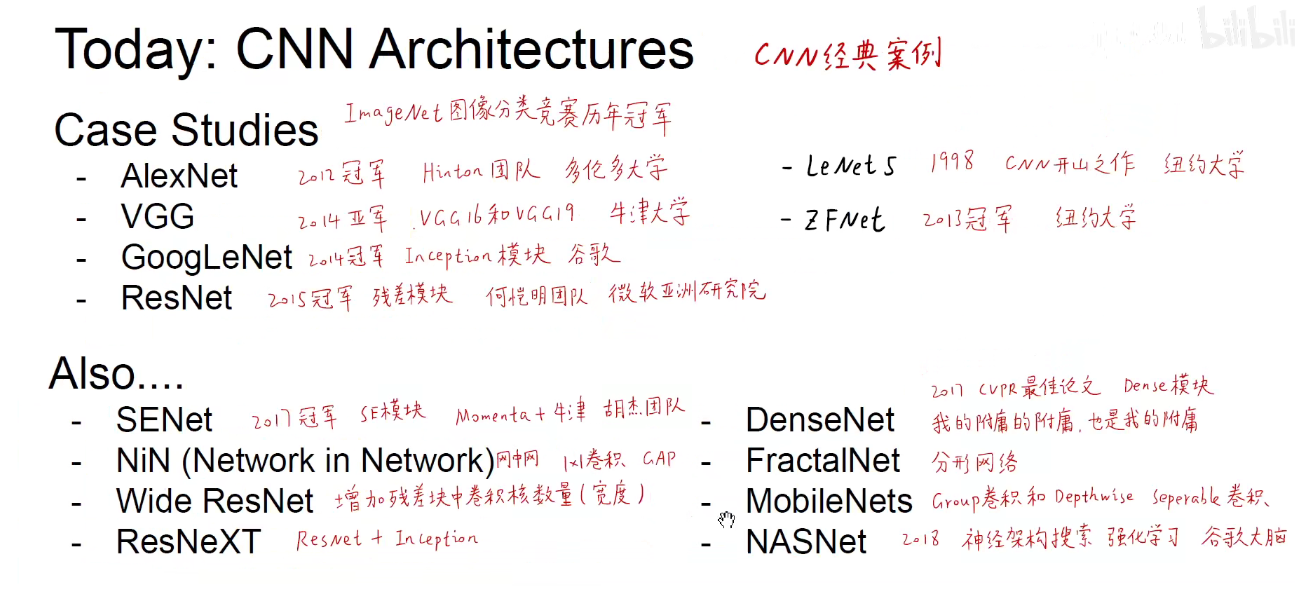 Today: CNN Architectures CNN经典案例
bilibili
Case Studies ImageNet图像分类竞赛历年冠军
- AlexNet 2012冠军 Hinton团队 多伦多大学
- VGG 2014亚军 VGG16和VGG19 牛津大学
- GoogLeNet 2014冠军 Inception模块 谷歌
- ResNet 2015冠军 残差模块 何恺明团队 微软亚洲研究院
- LeNet5 1998 CNN开山之作 纽约大学
- ZFNet 2013冠军 纽约大学
Also....
- SENet 2017冠军 SE模块 Momenta+牛津 胡杰团队
- NiN (Network in Network) 网中网 1x1卷积、GAP
- Wide ResNet 增加残差块中卷积核数量(宽度)
- ResNeXT ResNet + Inception
2017 CVPR最佳论文 Dense模块
- DenseNet 我的附庸的附庸,也是我的附庸
- FractalNet 分形网络
- MobileNets Group卷积和Depthwise Seperable卷积、
- NASNet 2018 神经架构搜索 强化学习 谷歌大脑